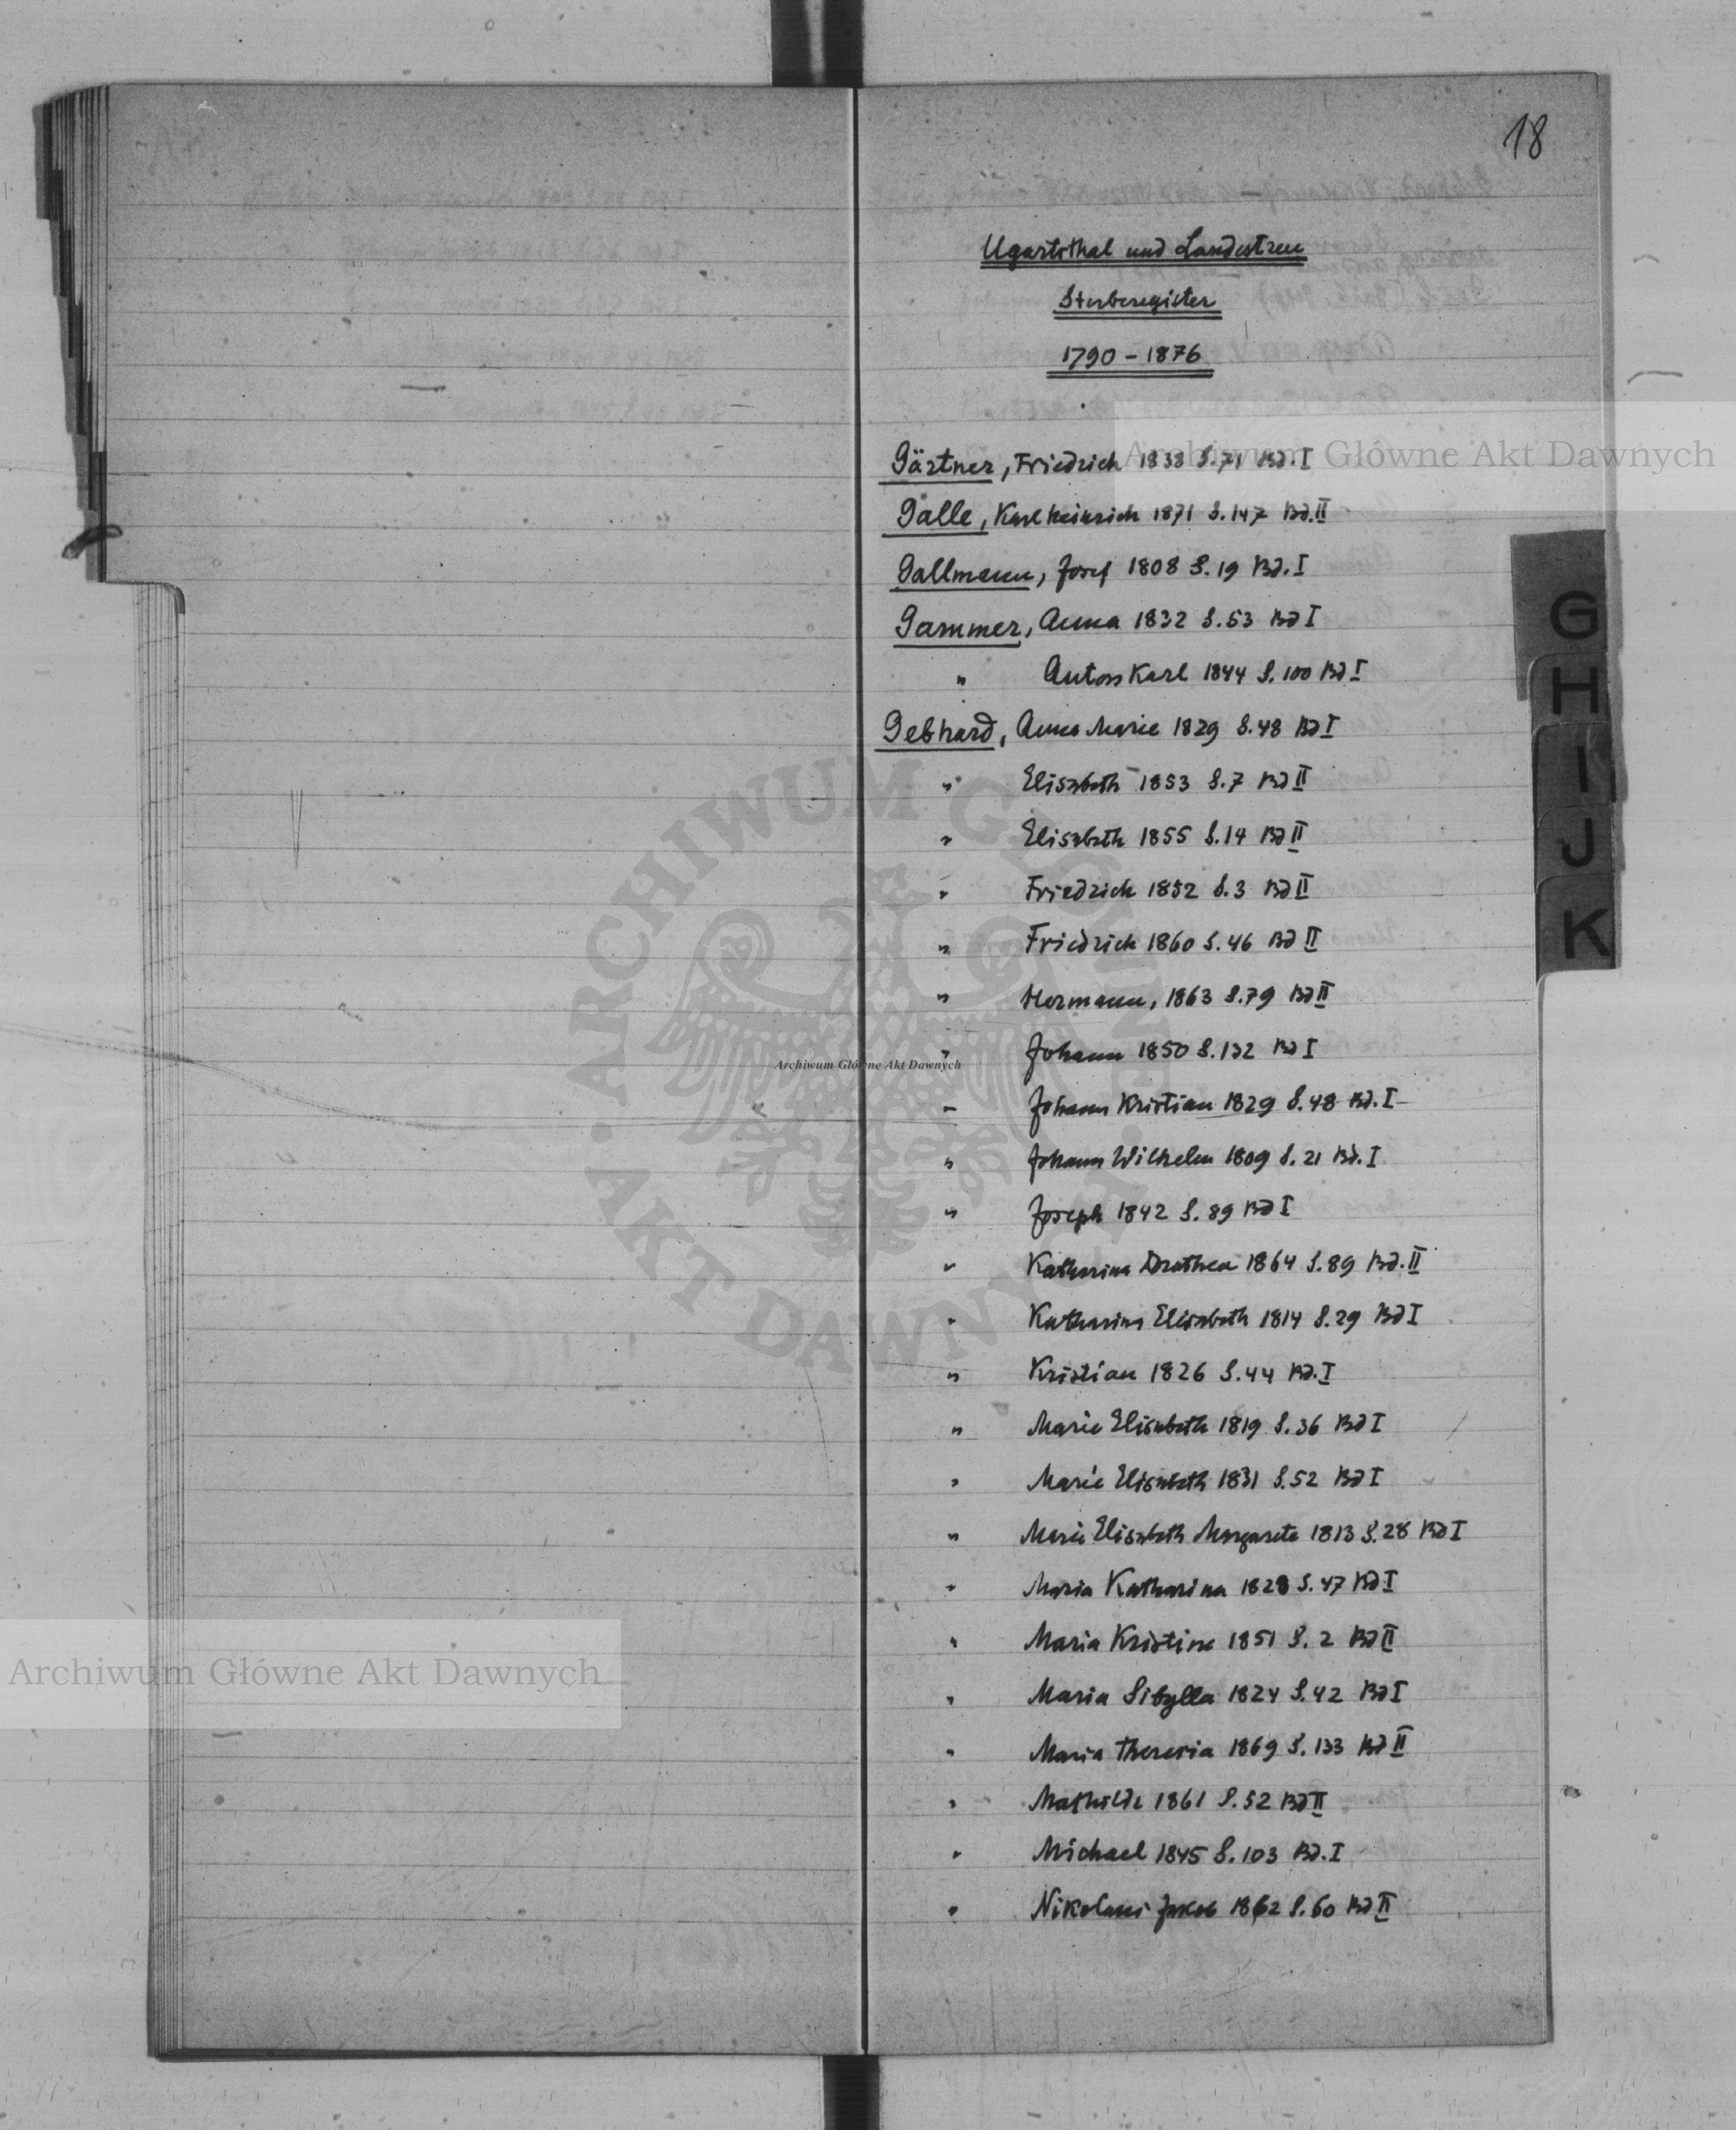 18
Ugartsthal und Landestreu
Sterberegister
1790 - 1876
Gärtner, Friedrich 1838 S. 71 Bd. I
Galle, Karl Heinrich 1871 S. 147 Bd. II
Gallmann, Josef 1808 S. 19 Bd. I
Gammer, Anna 1832 S. 53 Bd I
" Anton Karl 1844 S. 100 Bd I
Gebhard, Anna Marie 1829 S. 48 Bd I
" Elisabeth 1853 S. 7 Bd II
" Elisabeth 1855 S. 14 Bd II
" Friedrich 1852 S. 3 Bd II
" Friedrich 1860 S. 46 Bd II
" Hermann, 1863 S. 79 Bd II
" Johann 1850 S. 132 Bd I
" Johann Kristian 1829 S. 48 Bd. I
" Johann Wilhelm 1809 S. 21 Bd. I
" Joseph 1842 S. 89 Bd I
" Katharina Drothea 1864 S. 89 Bd. II
" Katharina Elisabeth 1814 S. 29 Bd I
" Kristian 1826 S. 44 Bd. I
" Marie Elisabeth 1819 S. 36 Bd I
" Marie Elisabeth 1831 S. 52 Bd I
" Marie Elisabeth Margareta 1813 S. 28 Bd I
" Maria Katharina 1828 S. 47 Bd I
" Maria Kristina 1851 S. 2 Bd II
" Maria Sibylla 1824 S. 42 Bd I
" Maria Theresia 1869 S. 133 Bd II
" Mathilde 1861 S. 52 Bd II
" Michael 1845 S. 103 Bd. I
" Nikolaus Jakob 1862 S. 60 Bd II
G
H
I
J
K
Archiwum Główne Akt Dawnych
Archiwum Główne Akt Dawnych
Archiwum Główne Akt Dawnych
ARCHIWUM GŁÓWNE · AKT DAWNYCH ·